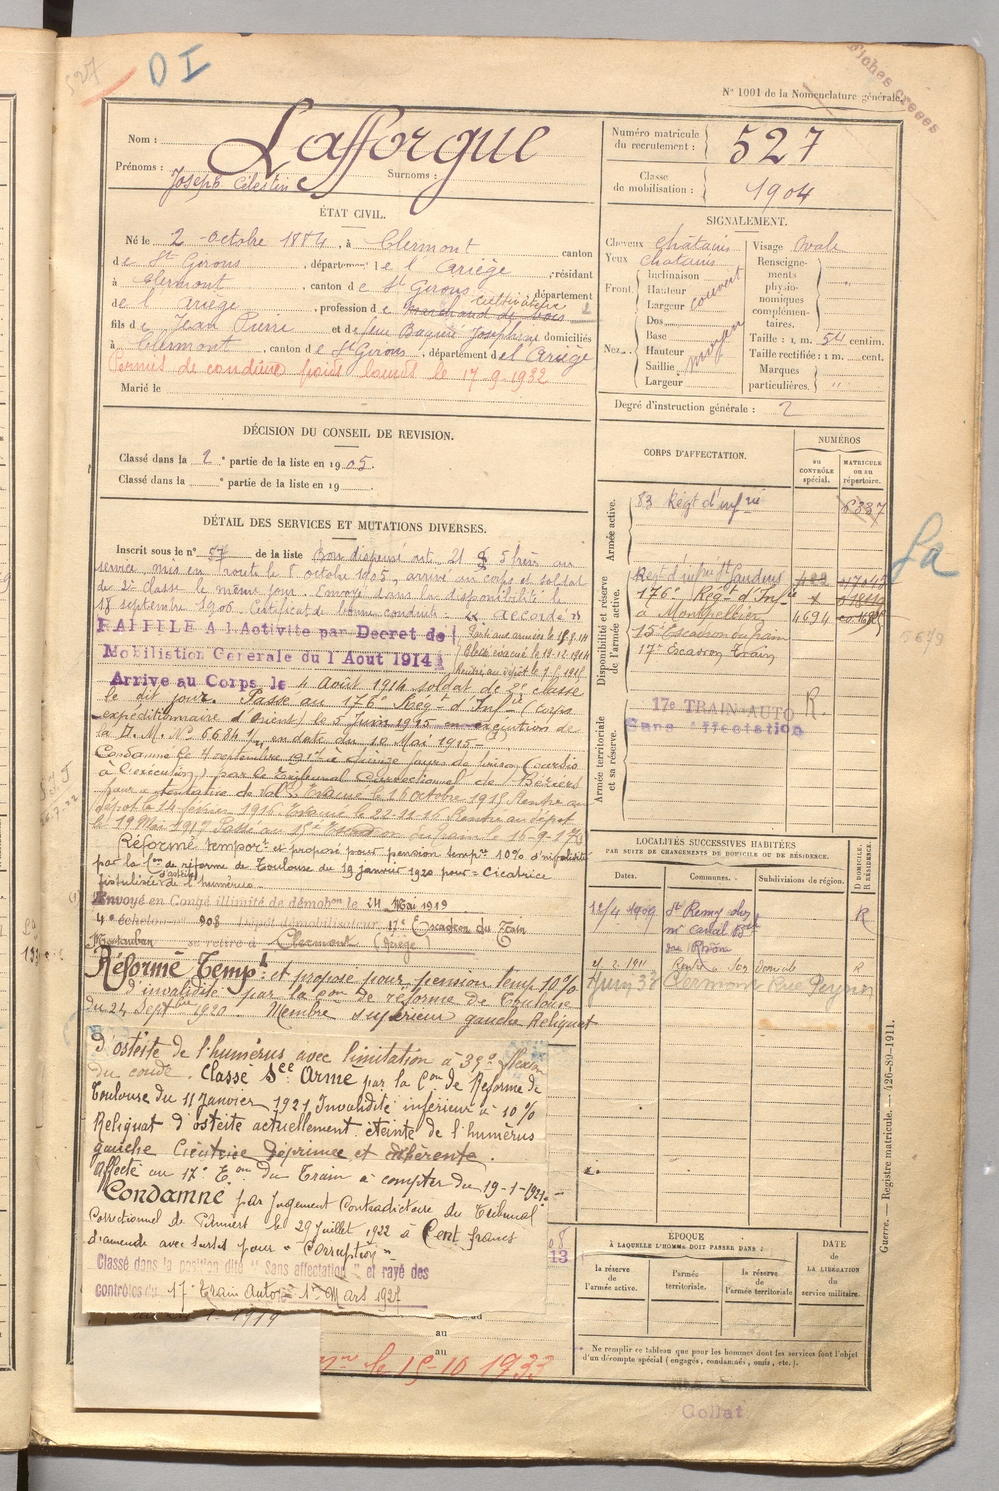 527
D I
Fiches créées
N° 1001 de la Nomenclature générale.
Nom : Lafforgue
Prénoms : Joseph Célestin Surnoms :
Numéro matricule du recrutement : 527
Classe de mobilisation : 1904
ÉTAT CIVIL.
Né le 2 octobre 1884, à Clermont canton
de St Girons, département de l'Ariège, résidant
à Clermont, canton de St Girons, département
de l'Ariège, profession de marchand de bois cultivateur
fils de Jean Pierre et de feue Josephine domiciliés
à Clermont, canton de St Girons, département de l'Ariège
Permis de conduire poids lourds le 17-9-1932
Marié le
SIGNALEMENT.
Cheveux châtains
Yeux chatains
Front. Inclinaison
Hauteur couvert
Largeur
Nez. Dos
Base moyen
Hauteur
Saillie
Largeur
Visage Ovale
Renseignements physionomiques complémentaires.
Taille : 1 m. 54 centim.
Taille rectifiée : 1 m. cent.
Marques particulières. "
Degré d'instruction générale : 2
DÉCISION DU CONSEIL DE REVISION.
Classé dans la 2e partie de la liste en 1905.
Classé dans la e partie de la liste en 19
DÉTAIL DES SERVICES ET MUTATIONS DIVERSES.
Inscrit sous le n° 57 de la liste Bon dispensé art. 21 § 5 frère au
service, mis en route le 8 octobre 1905, arrivé au corps et soldat
de 2e classe le même jour. Envoyé dans la disponibilité le
18 septembre 1906. Certificat de bonne conduite "accordé"
RAPPELE A l'Activite par Decret de
Mobilistion Generale du 1 Aout 1914
Arrive au Corps le 4 Août 1914 soldat de 2e classe
Parti aux armées le
Blessé évacué le 19.12.1914
Rentré au dépôt le
le dit jour. Passé au 176e Rég-t d'Inf-ie (corps
expéditionnaire d'Orient) le 5 Juin 1915 en exécution de
la D. M. N° 6684 1/11 en date du 10 Mai 1915-
Condamné le 4 septembre 1917 à quinze jours de prison (sursis
à l'exécution) par le Tribunal Correctionnel de Béziers
pour "tentative de vol". Evacué le 16 octobre 1915 Rentré au
dépôt le 14 février 1916. Evacué le 22-11-16 Rentré au dépôt
le 19 Mai 1917 Passé au 15e Escadron du train le 16-9-17
Réformé tempor-t et proposé pour pension temp-re 10% d'invalidité
par la C-on de réforme de Toulouse du 19 janvier 1920 pour = Cicatrice
fistulisée d'ostéite de l'humérus
Envoyé en Congé illimité de démob-on le 24 Mai 1919
4e échelon n° 908 Dépôt démobilisateur 17e Escadron du Train
Montauban se retire à Clermont (Ariège)
Réformé Temp-t et proposé pour pension temp 10%
d'invalidité par la C-on de réforme de Toulouse
du 24 Sept-bre 1920. Membre supérieur gauche Reliquat
d'ostéite de l'humérus avec limitation à 35° flexion
du coude Classé S-ce Armé par la C-on de Réforme de
Toulouse du 11 Janvier 1921 Invalidité inférieur à 10%
Reliquat d'ostéite actuellement éteinte de l'humérus
gauche Cicatrice déprimée et adhérente.
Affecté au 17e E-on du Train à compter du 19-1-1921.-
Condamné par jugement Contradictoire du Tribunal
Correctionnel de Pamiers le 29 Juillet 1922 à Cent francs
d'amende avec sursis pour "Corruption"
Classé dans la position dite "Sans affectation" et rayé des
contrôles du 17e Train Auto le 1er Mars 1927
1919
au
au
le 15-10 1933
CORPS D'AFFECTATION.
NUMÉROS
au CONTRÔLE spécial.
MATRICULE ou au répertoire.
Armée active.
83 Régt d'infrie 6337
Disponibilité et réserve de l'armée active.
Régt d'infrie St Gaudens
176e Régt d'Infie
à Montpellier 4694
15e Escadron du train
17e Escadron Train
5679
Sa
Armée territoriale et sa réserve.
17e TRAIN AUTO R.
Sans affectation
LOCALITÉS SUCCESSIVES HABITÉES
PAR SUITE DE CHANGEMENTS DE DOMICILE OU DE RÉSIDENCE.
Dates. Communes. Subdivisions de région. D DOMICILE. R RÉSIDENCE.
12/4 1909 St Remy R
du Rhône
2. 1911 Rentré Son Domicile R
Juin 32 Clermont Rue
08
13
ÉPOQUE
À LAQUELLE L'HOMME DOIT PASSER DANS :
la réserve de l'armée active.
l'armée territoriale.
la réserve de l'armée territoriale
DATE de LA LIBÉRATION du service militaire.
Ne remplir ce tableau que pour les hommes dont les services font l'objet
d'un décompte spécial (engagés, condamnés, omis, etc.).
Collat
Guerre. — Registre matricule. — 426-89-1911.